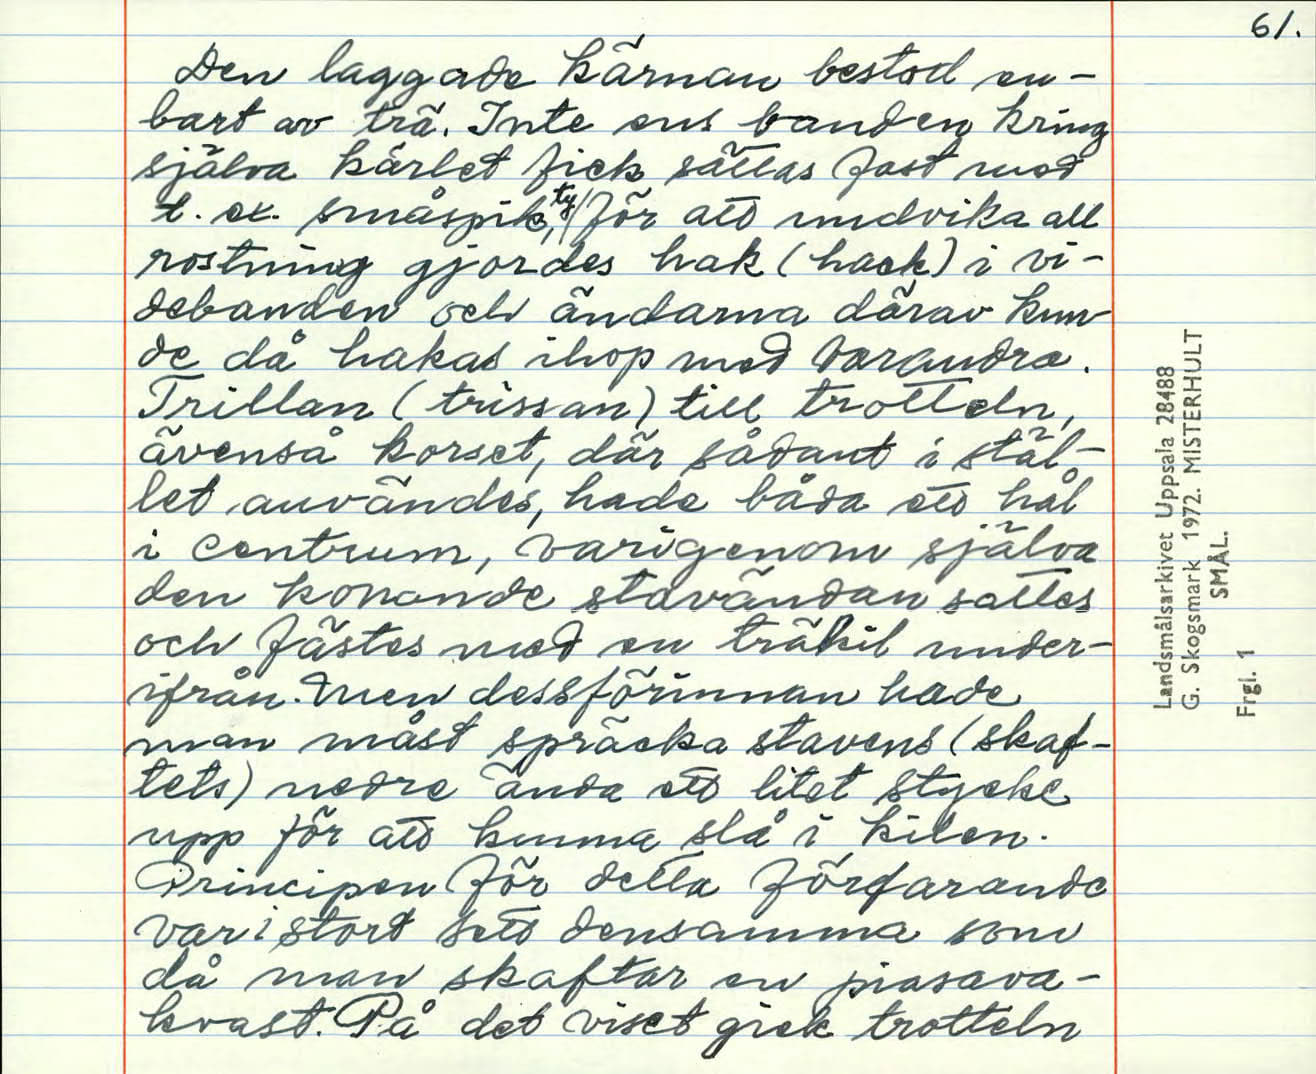 61.
Den laggade kärnan bestod en-
bart av trä. Inte ens banden kring
själva kärlet fick sättas fast med
t. ex. småspik, ty för att undvika all
rostning gjordes hak (hack) i vi-
debanden och ändarna därav kun-
de då hakas ihop med varandra.
Trillan (trissan) till trotteln,
ävenså korset, där sådant i stäl-
let användes, hade båda ett hål
i centrum, varigenom själva
den konande stavändan sattes
och fästes med en träkil under-
ifrån. Men dessförinnan hade
man måst spräcka stavens (skaf-
tets) nedre ända ett litet stycke
upp för att kunna slå i kilen.
Principen för detta förfarande
var i stort sett densamma som
då man skaftar en piasava-
kvast. På det viset gick trotteln
Landsmålsarkivet Uppsala 28488
G. Skogsmark 1972. MISTERHULT
SMÅL.
Frgl. 1